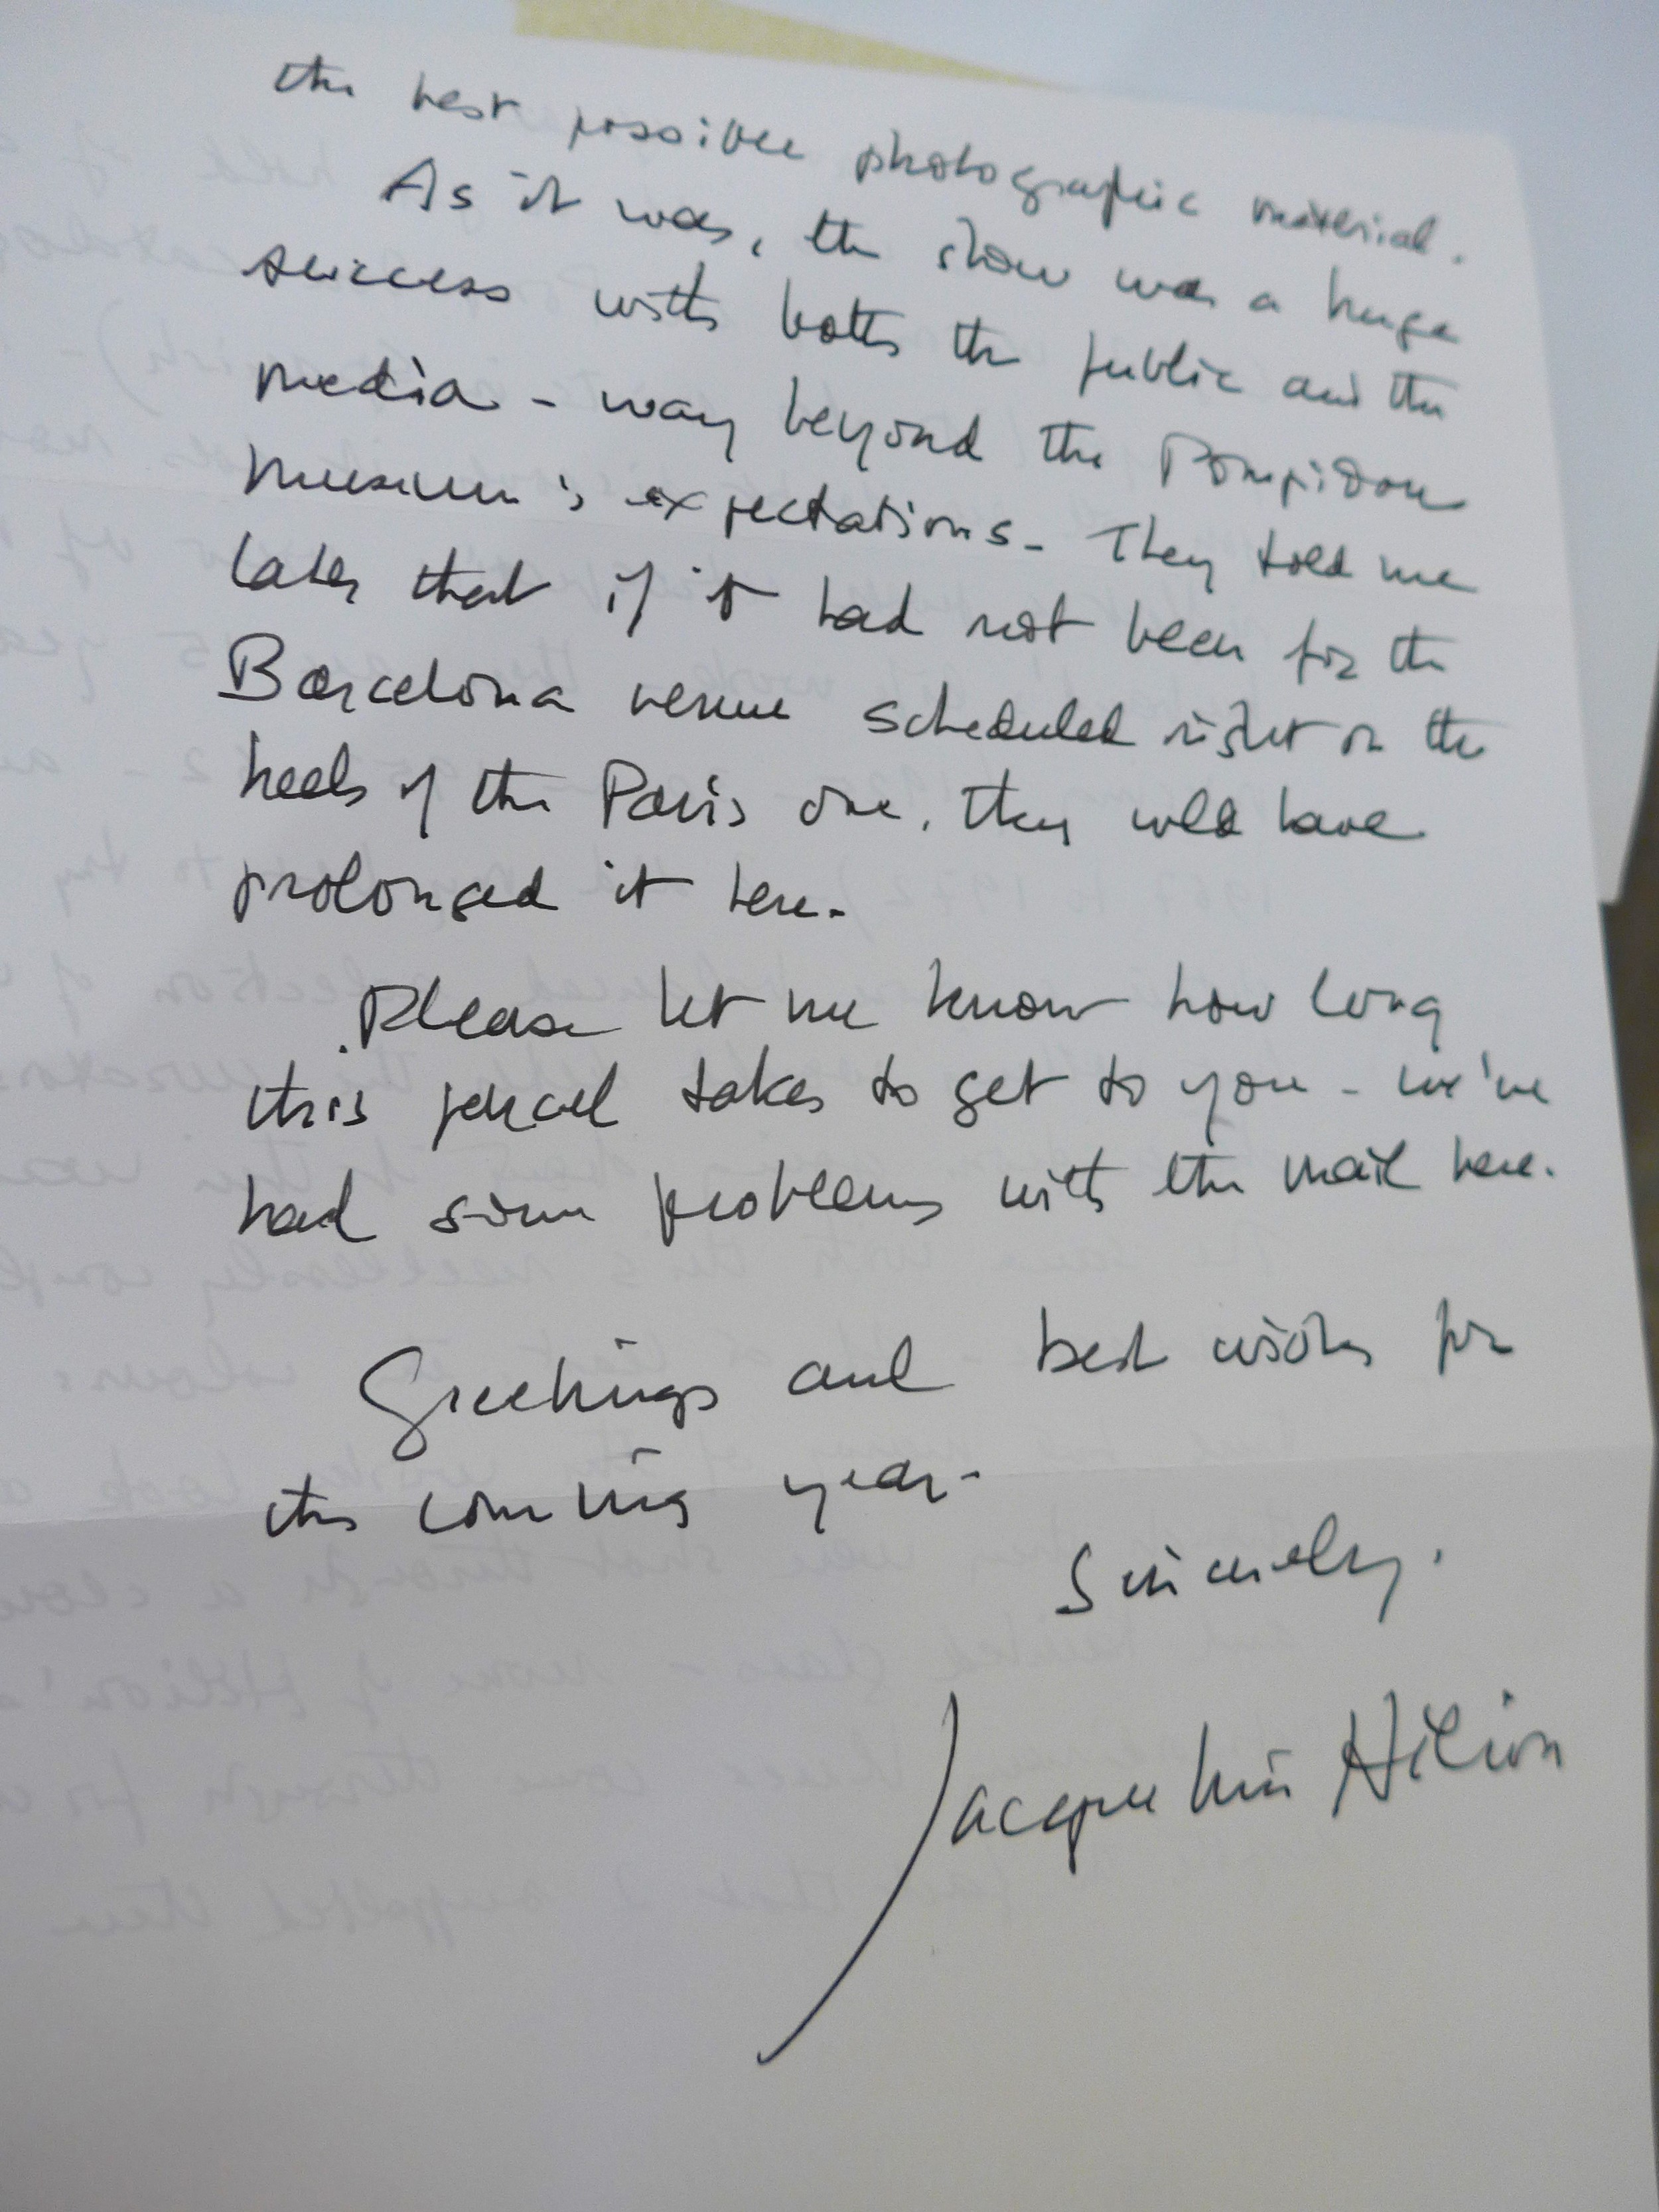 the best possible photographic material.
As it was, the show was a huge
success with both the public and the
media - way beyond the Pompidou
Museum's expectations - They told me
later that if it had not been for the
Barcelona venue scheduled right on the
heels of the Paris one, they wld have
prolonged it here -
Please let me know how long
this parcel takes to get to you - we've
had some problems with the mail here.
Greetings and best wishes for
the coming year -
Sincerely,
Jacqueline Hélion